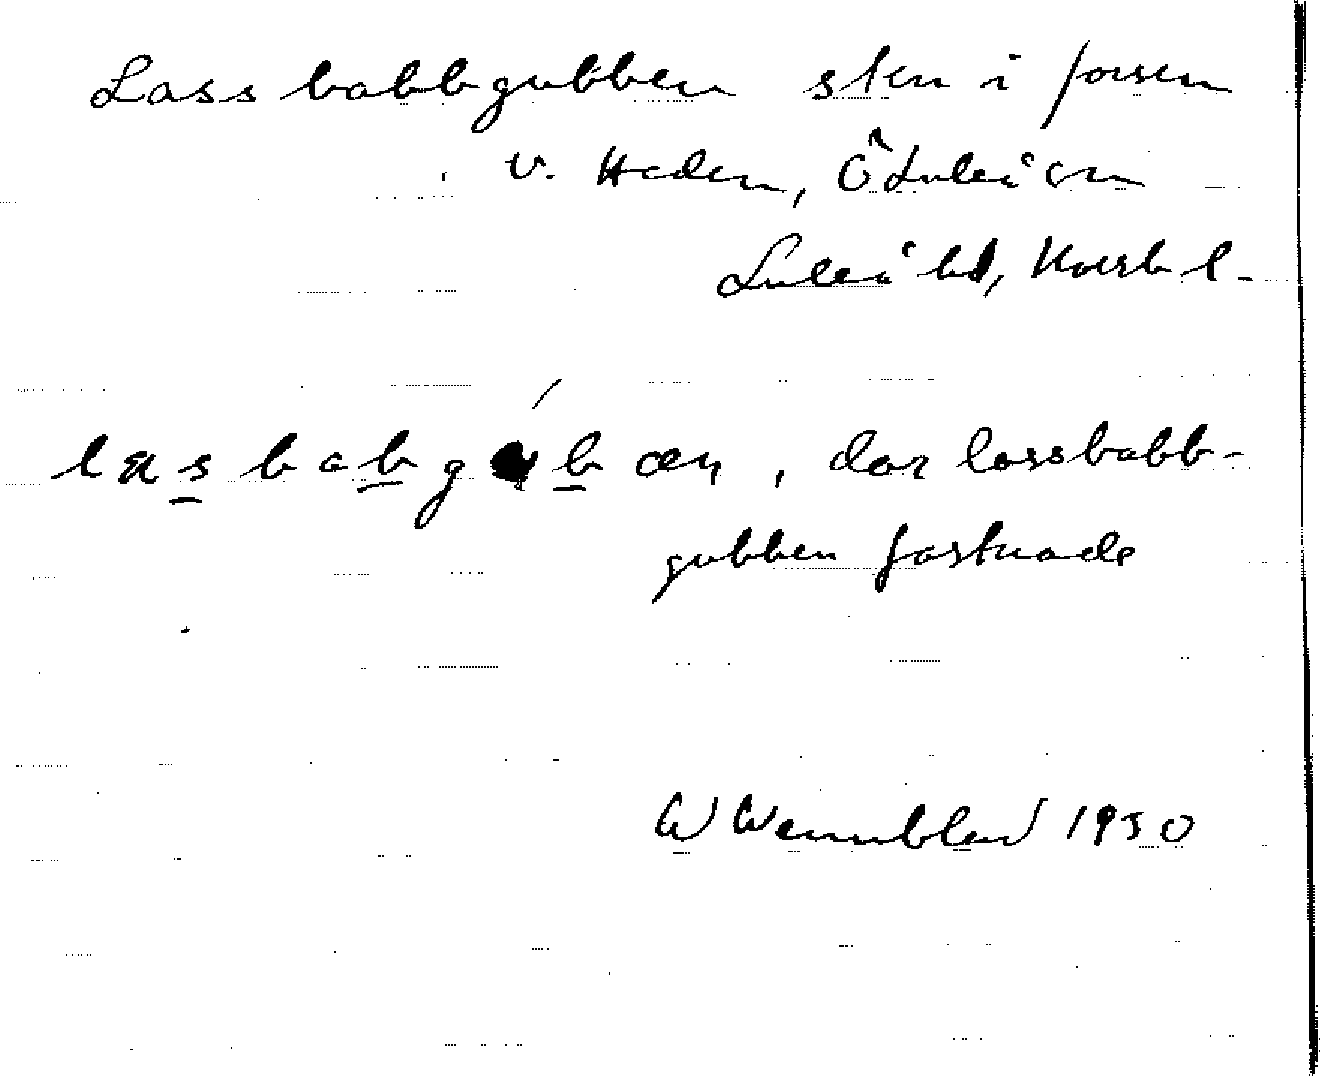 Lassbabbgubben sten i forsen
v. Heden, Ö Luleå sn
Luleå hd, Norrb l-
lasbabgubæn, där lassbabb-
gubben fastnade
W Wennblad 1930